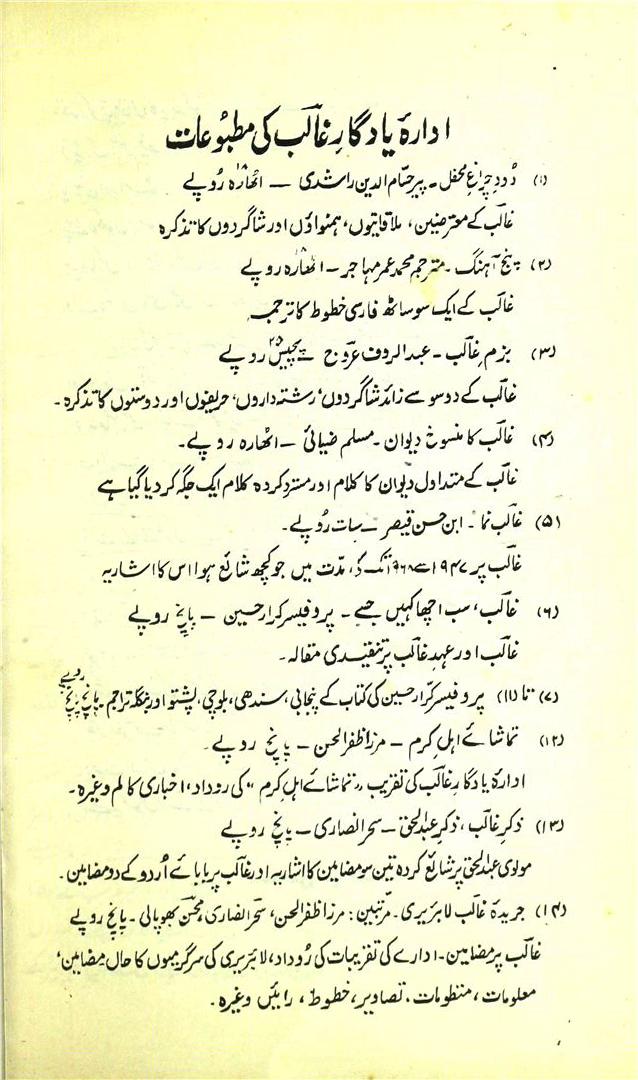 ادارۂ یادگارِ غالب کی مطبوعات
(۱) دُودِ چراغِ محفل ۔ پیر حسّام الدین راشدی — اٹھارہ ۱۸ رُوپے
غالب کے معترضین، ملاقاتیوں، ہمنواؤں اور شاگردوں کا تذکرہ
(۲) پنج آہنگ ۔ مترجم محمد عمر مہاجر — اٹھارہ ۱۸ روپے
غالب کے ایک سو ساٹھ فارسی خطوط کا ترجمہ
(۳) بزمِ غالب — عبدالروف عروج — پچیس ۲۵ روپے
غالب کے دو سو سے زائد شاگردوں، رشتہ داروں، حریفوں اور دوستوں کا تذکرہ ۔
(۴) غالب کا منسوخ دیوان ۔ مسلم ضیائی — اٹھارہ روپے ۔
غالب کے متداول دیوان کا کلام اور مسترد کردہ کلام ایک جگہ کر دیا گیا ہے
(۵) غالب نما ۔ ابن حسن قیصر — سات رُوپے ۔
غالب پر ۱۹۴۷ سے ۱۹۶۸ تک کی مدّت میں جو کچھ شائع ہوا اس کا اشاریہ
(۶) غالب، سب اچھا کہیں جسے ۔ پروفیسر کرار حسین — پانچ روپے
غالب اور عہدِ غالب پر تنقیدی مقالہ ۔
(۷) تا (۱۱) پروفیسر کرّار حسین کی کتاب کے پنجابی، سندھی، بلوچی، پشتو اور بنگلہ تراجم ۔ پانچ پانچ روپے
(۱۲) تماشائے اہلِ کرم — مرزا ظفر الحسن — پانچ روپے ۔
ادارۂ یادگارِ غالب کی تقریب "تماشائے اہلِ کرم" کی روداد، اخباری کالم وغیرہ ۔
(۱۳) ذکرِ غالب، ذکرِ عبدالحق — سحر انصاری — پانچ روپے
مولوی عبدالحق پر شائع کردہ تین سو مضامین کا اشاریہ اور غالب پر بابائے اُردو کے دو مضامین ۔
(۱۴) جریدۂ غالب لائبریری ۔ مرتبین : مرزا ظفر الحسن، سحر انصاری، محسن بھوپالی ۔ پانچ روپے
غالب پر مضامین ۔ ادارے کی تقریبات کی رُوداد، لائبریری کی سرگرمیوں کا حال، مضامین،
معلومات، منظومات، تصاویر، خطوط، رائیں وغیرہ ۔